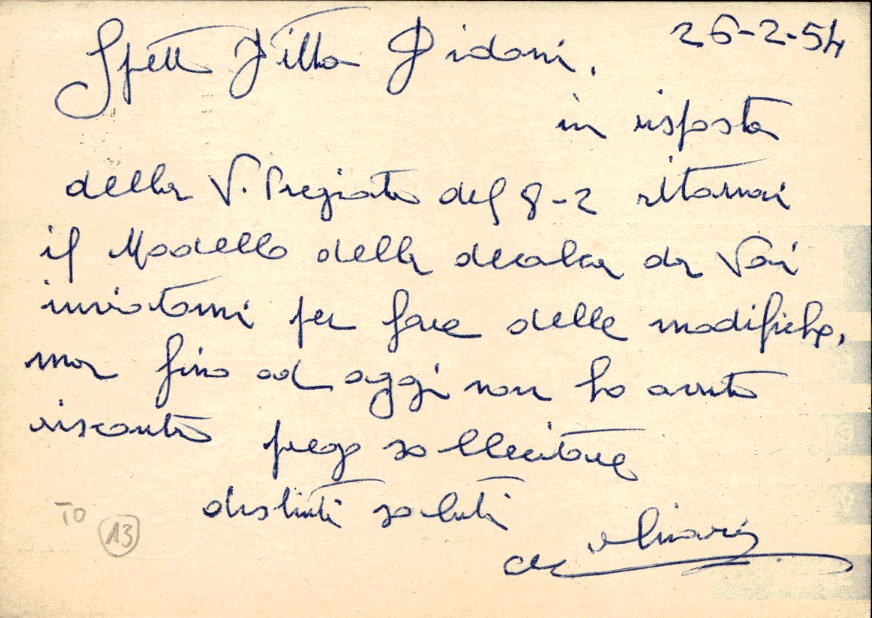 26-2-54
Spett Ditta Didoni,
in risposta
della V. Pregiata del 8-2 ritornai
il Modello della decalca da Voi
inviatomi per fare delle modifiche,
ma fino ad oggi non ho avuto
riscontro prego sollecitare
distinti saluti
TO 13